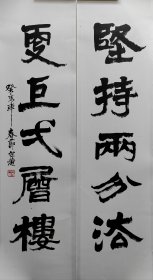 堅持兩分法
更上弌層樓
癸亥 春節